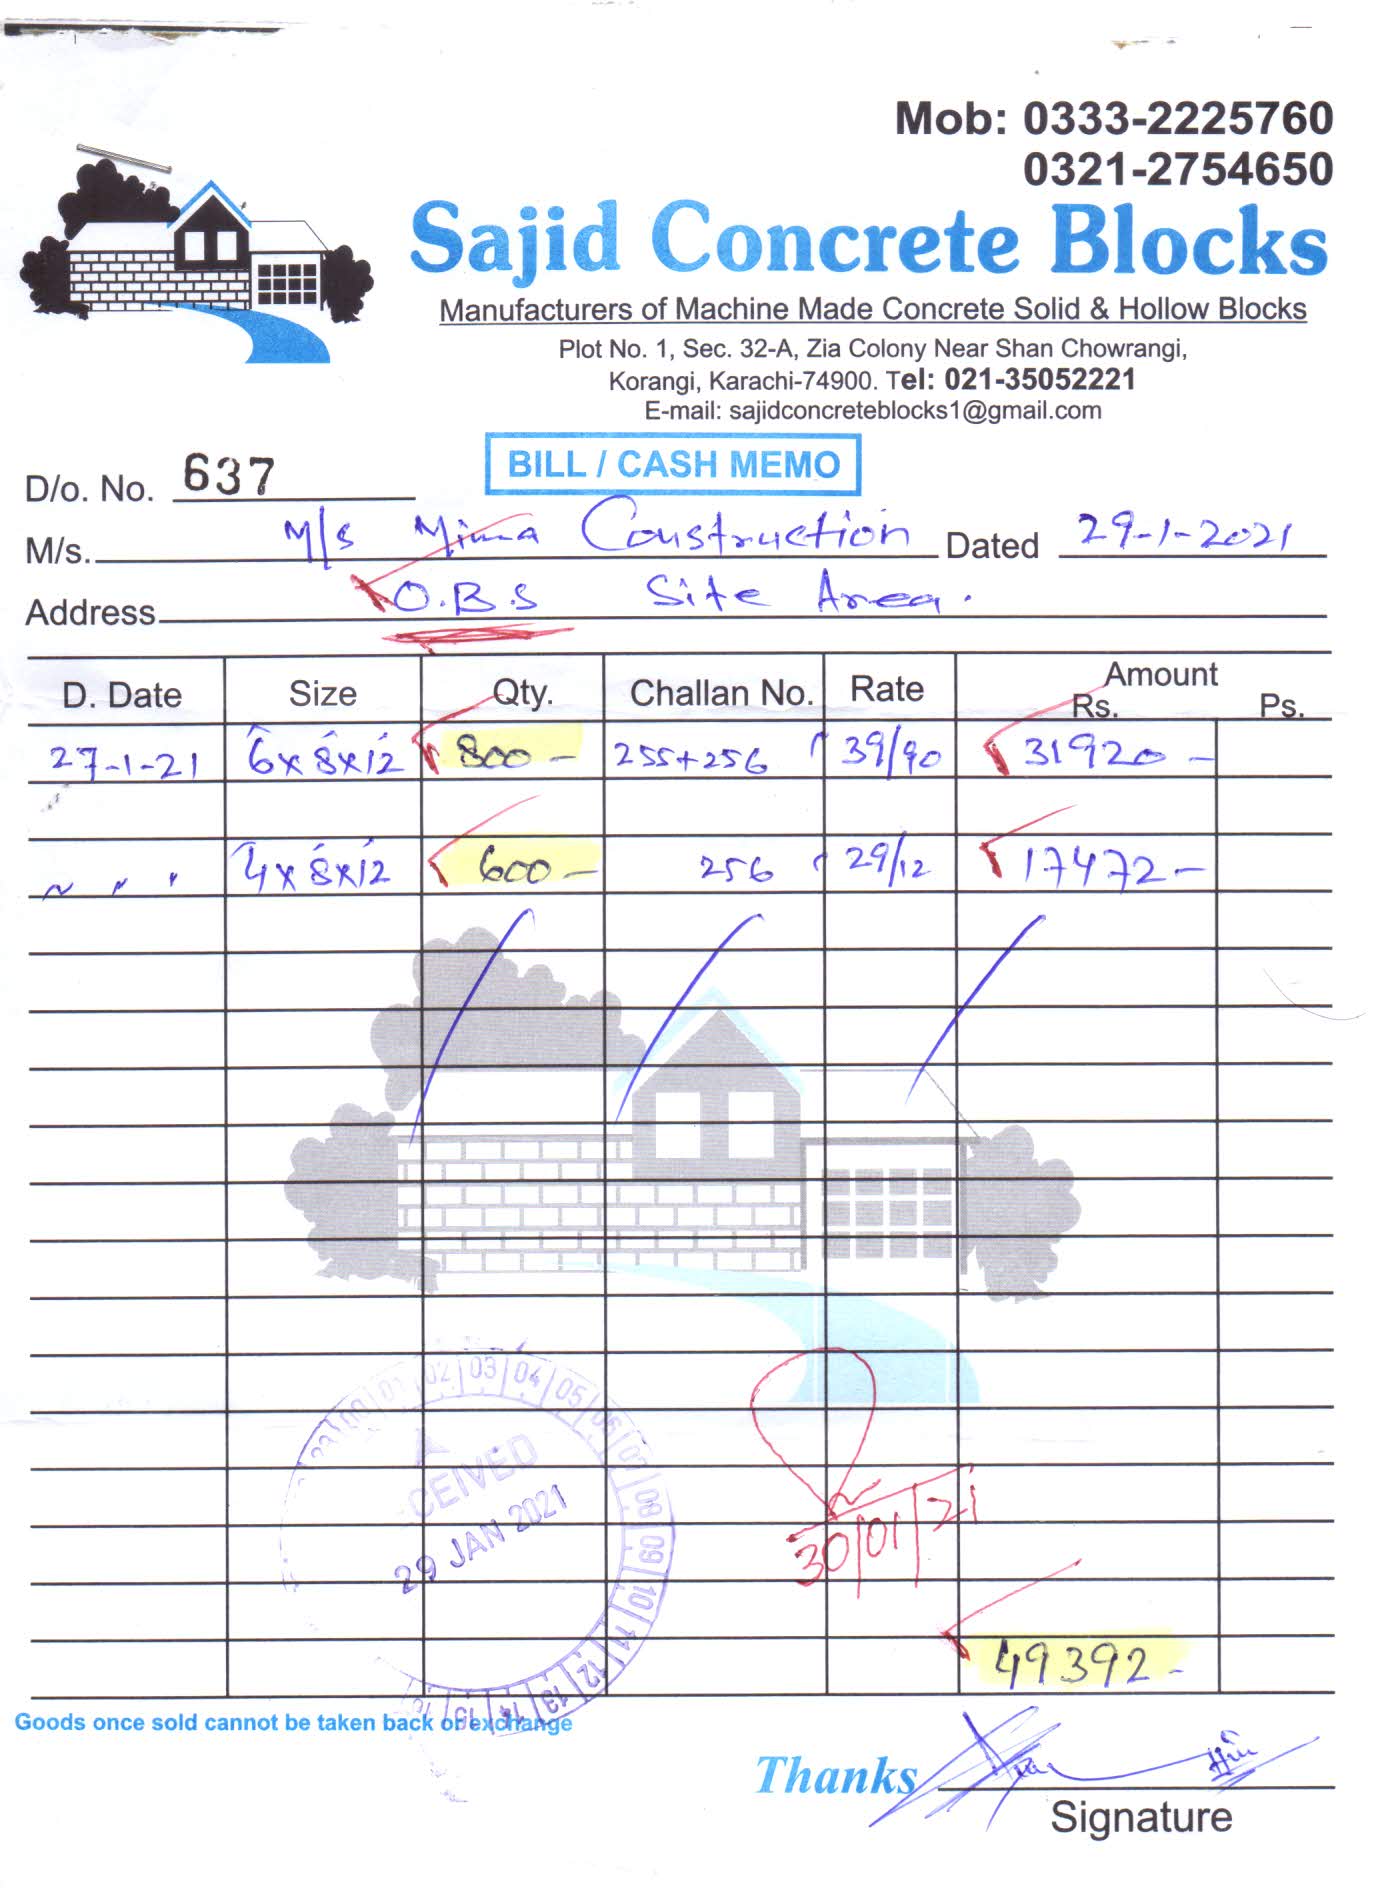 Mob: 0333-2225760
0321-2754650
Sajid Concrete Blocks
Manufacturers of Machine Made Concrete Solid & Hollow Blocks
Plot No. 1, Sec. 32-A, Zia Colony Near Shan Chowrangi,
Korangi, Karachi-74900. Tel: 021-35052221
E-mail: sajidconcreteblocks1@gmail.com
BILL / CASH MEMO
D/o. No. 637
M/s. M/s Mima Construction Dated 29-1-2021
Address O.B.S Site Area.
D. Date Size Qty. Challan No. Rate Amount
Rs. Ps.
27-1-21 6x8x12 800 - 255+256 39/90 31920 -
" " " 4x8x12 600 - 256 29/12 17472 -
00 01 02 03 04 05 06 07 08 09 10 11 12 13 14 15 16
CEIVED
29 JAN 2021
30/01/21
49392 -
Goods once sold cannot be taken back or exchange
Thanks
Signature